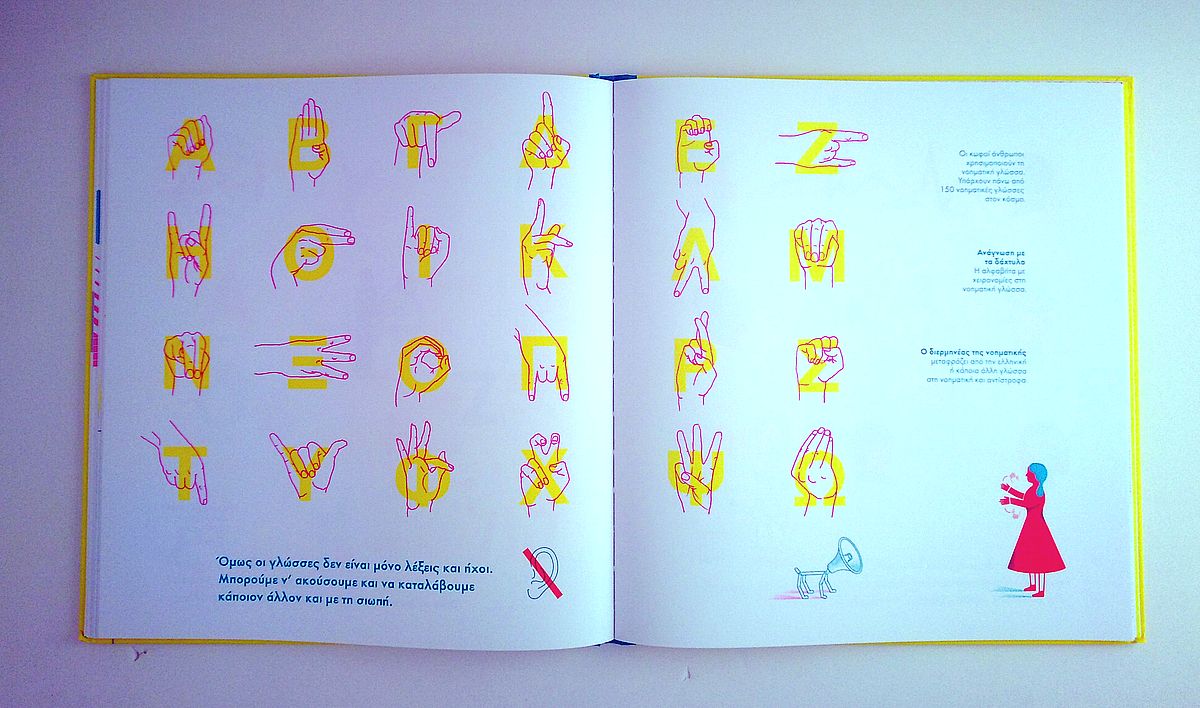 Α Β Γ Δ Ε Ζ
Η Θ Ι Κ Λ Μ
Ν Ξ Ο Π Ρ Σ
Τ Υ Φ Χ Ψ Ω
Όμως οι γλώσσες δεν είναι μόνο λέξεις και ήχοι.
Μπορούμε ν' ακούσουμε και να καταλάβουμε
κάποιον άλλον και με τη σιωπή.
Οι κωφοί άνθρωποι
χρησιμοποιούν τη
νοηματική γλώσσα.
Υπάρχουν πάνω από
150 νοηματικές γλώσσες
στον κόσμο.
Ανάγνωση με
τα δάχτυλα
Η αλφαβήτα με
χειρονομίες στη
νοηματική γλώσσα.
Ο διερμηνέας της νοηματικής
μεταφράζει από την ελληνική
ή κάποια άλλη γλώσσα
στη νοηματική και αντίστροφα.